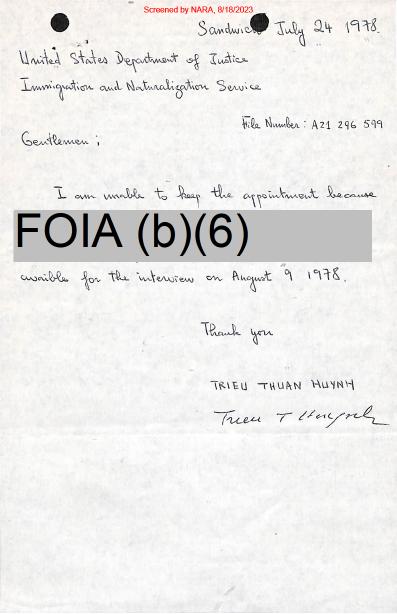 Screened by NARA, 8/18/2023
Sandwich July 24 1978.
United States Department of Justice
Immigration and Naturalization Service
File Number: A21 296 599
Gentlemen;
I am unable to keep the appointment because
FOIA (b)(6)
avaible for the interview on August 9 1978.
Thank you
TRIEU THUAN HUYNH
Trieu T Huynh